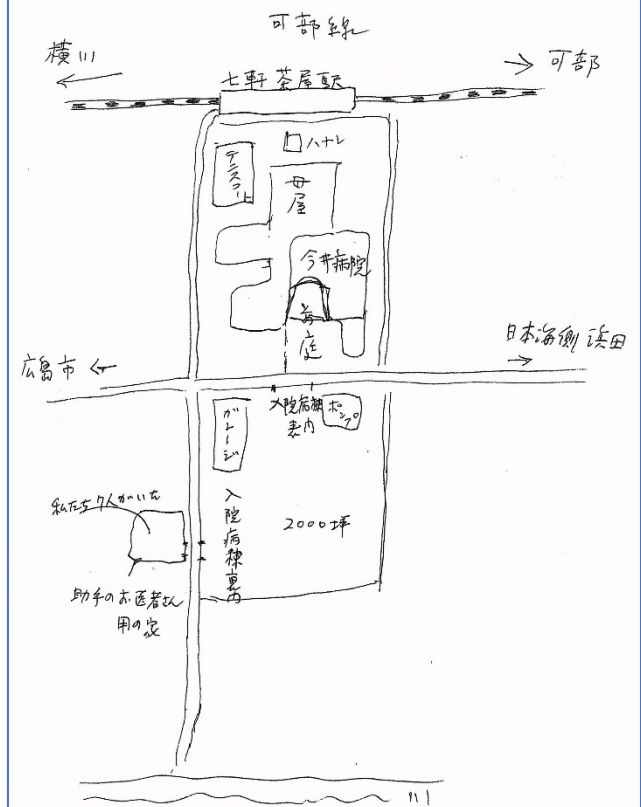 可部線
横川
可部
七軒茶屋駅
ハナレ
テニスコート
母屋
今井病院
前庭
日本海側 浜田
広島市
入院病棟
表門
ポンプ
ガレージ
私たち7人がいた
入院病棟裏門
2000坪
助手のお医者さん
用の家
川